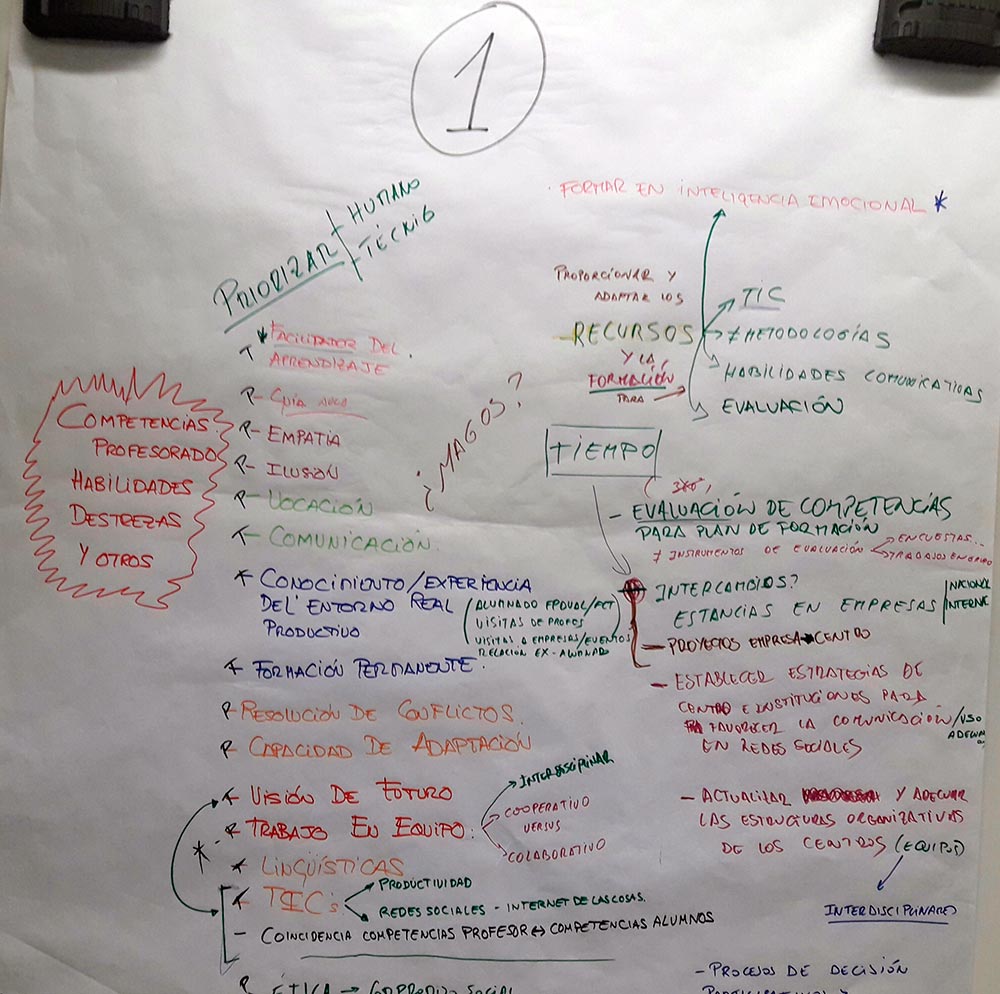 1
PRIORIZAR
HUMANO
TÉCNICO
* FACILITADOR DEL
APRENDIZAJE
GUÍA
EMPATÍA
ILUSIÓN
VOCACIÓN
COMUNICACIÓN.
* CONOCIMIENTO/EXPERIENCIA
DEL ENTORNO REAL
PRODUCTIVO
ALUMNADO FPDUAL/FCT
VISITAS DE PROFES
VISITAS A EMPRESAS/EVENTOS
RELACIÓN EX-ALUMNADO
FORMACIÓN PERMANENTE.
RESOLUCIÓN DE CONFLICTOS.
CAPACIDAD DE ADAPTACIÓN
VISIÓN DE FUTURO
TRABAJO EN EQUIPO:
INTERDISCIPLINAR
COOPERATIVO
VERSUS
COLABORATIVO
* LINGÜÍSTICAS
TICs
PRODUCTIVIDAD
REDES SOCIALES - INTERNET DE LAS COSAS.
- COINCIDENCIA COMPETENCIAS PROFESOR ↔ COMPETENCIAS ALUMNOS
ÉTICA → COMPROMISO SOCIAL
COMPETENCIAS
PROFESORADO
HABILIDADES
DESTREZAS
Y OTROS
¿MAGOS?
. FORMAR EN INTELIGENCIA EMOCIONAL *
PROPORCIONAR Y
ADAPTAR LOS
RECURSOS
Y LA
FORMACIÓN
PARA
TIC
≠ METODOLOGÍAS
HABILIDADES COMUNICATIVAS
EVALUACIÓN
TIEMPO
360°
- EVALUACIÓN DE COMPETENCIAS
PARA PLAN DE FORMACIÓN
≠ INSTRUMENTOS DE EVALUACIÓN
ENCUESTAS...
TRABAJOS EN GRUPO
INTERCAMBIOS?
ESTANCIAS EN EMPRESAS
NACIONAL
INTERNC
- PROYECTOS EMPRESA CENTRO
- ESTABLECER ESTRATEGIAS DE
CENTRO E INSTITUCIONES PARA
FAVORECER LA COMUNICACIÓN /USO
EN REDES SOCIALES
- ACTUALIZAR Y ADECUAR
LAS ESTRUCTURAS ORGANIZATIVAS
DE LOS CENTROS (EQUIPOS)
INTERDISCIPLINARES
- PROCESOS DE DECISIÓN